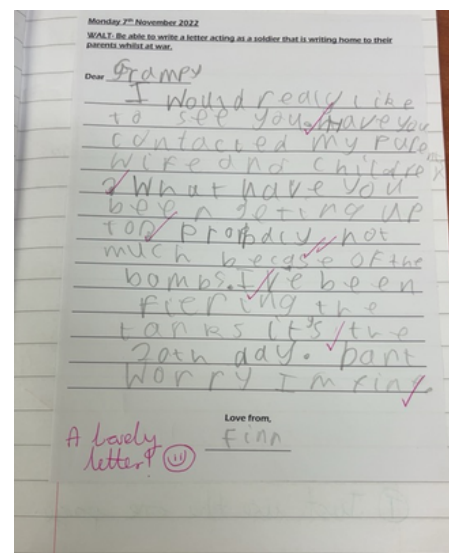 Monday 7th November 2022
WALT: Be able to write a letter acting as a soldier that is writing home to their
parents whilst at war.
Dear Grampy
I Would realy like
to see you. Have you
contacted my pure
wife and children
? What have you
been geting up
too propbaly not
much becase of the
bombs. I've been
fiering the
tanks it's the
20th day. Dant
worry I'm fing
Love from,
Finn
A lovely
letter!